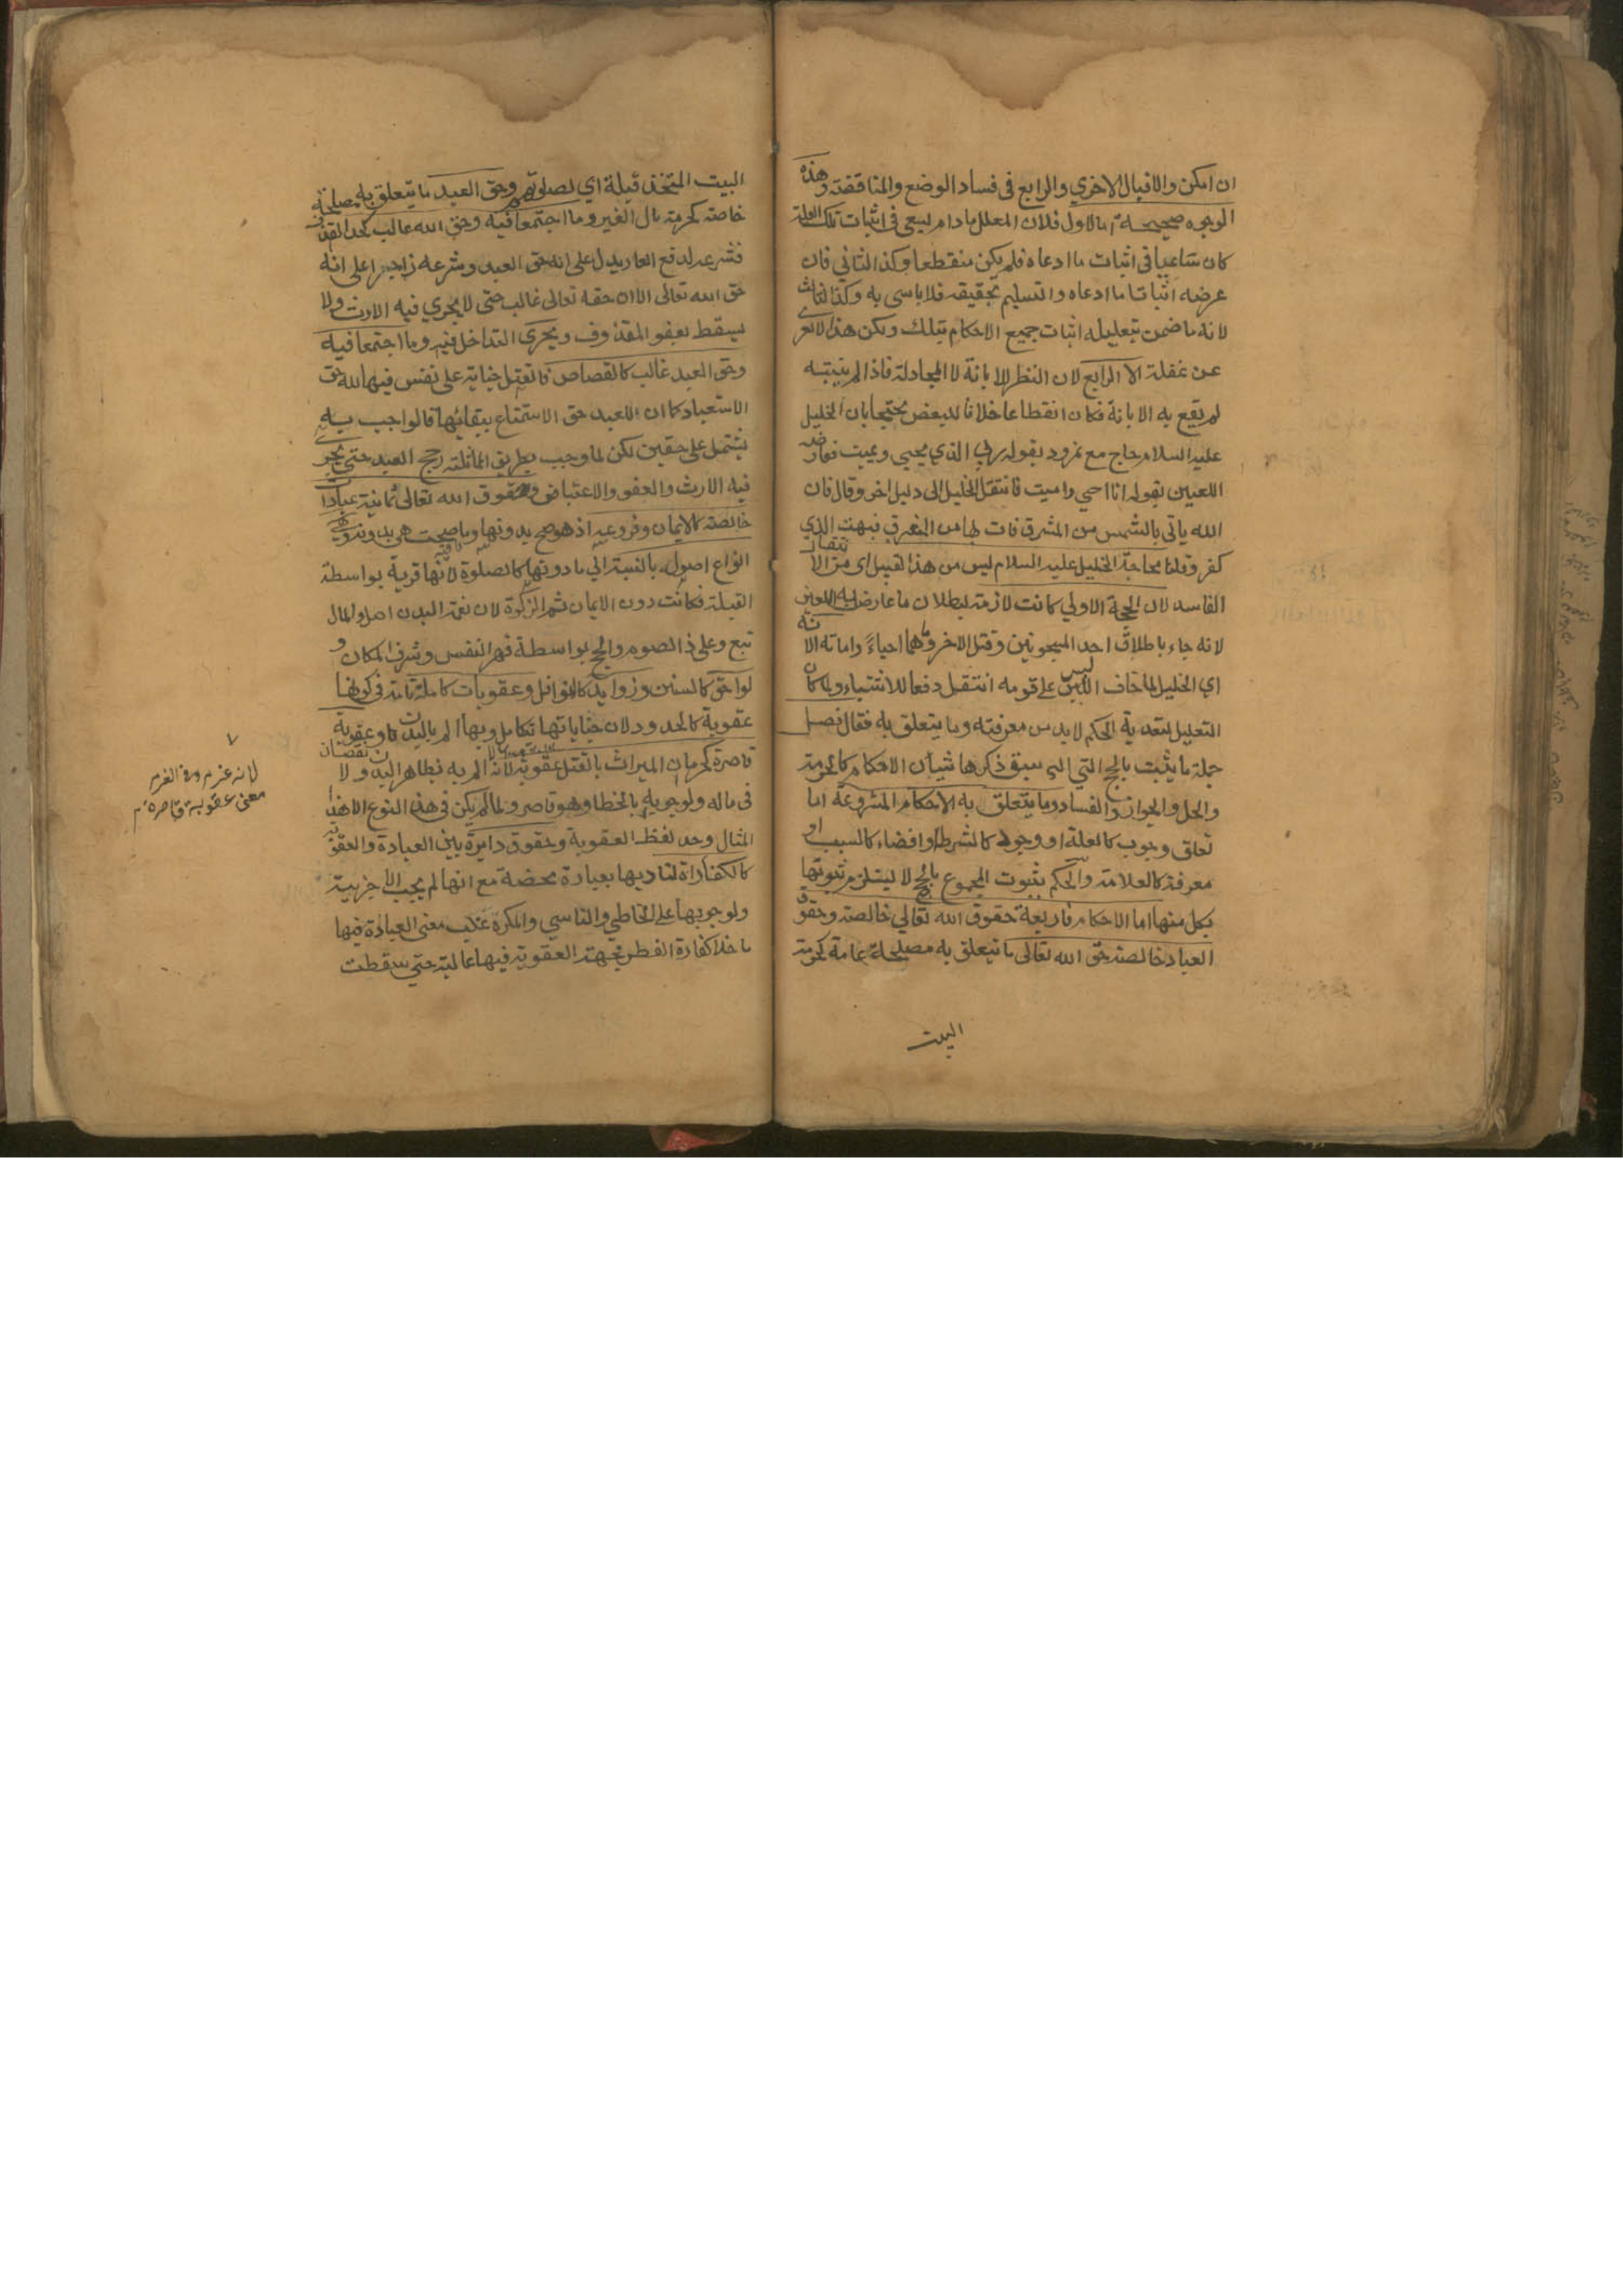 ان امكن والاقبال الاخري والرابع فى فساد الوضع والمناقضة وهذه
الوجوه صحيحة اما الاول فلان المعلل مادام يسعى فى اثبات تلك العلة
كان ساعيا فى اثبات ما ادعاه فلم يكن منقطعا وكذا الثاني فان
غرضه اثبات ما ادعاه والتسليم بحقيقه فلا باس به وكذا الثالث
لانه ما ضمن بتعليله اثبات جميع الاحكام بتلك ولكن هذا لا يعرى
عن غفلة الا الرابع لان النظر للابانة لا المجادلة فاذا لم يثبته
لم يقع به الابانة فكان انقطاعا خلافا للبعض محتجا بان الخليل
عليه السلام حاج مع نمرود بقوله ربي الذي يحيي ويميت فعارضه
اللعين بقوله انا احي واميت فانتقل الخليل الى دليل اخر وقال فان
الله ياتي بالشمس من المشرق فات بها من المغرب فبهت الذي
كفر وقلنا محاجة الخليل عليه السلام ليس من هذا القبيل اي من الانتقال
الفاسد لان الحجة الاولي كانت لازمة لبطلان ما عارض به اللعين
لانه جاء باطلاق احد المسجونين وقتل الاخر وهما احياء واماتة الا انه
اي الخليل لما خاف اللبس على قومه انتقل دفعا للاشتباه ولما كان
التعليل لتعدية الحكم لا بد من معرفته وما يتعلق به فقال فصل
جملة ما يثبت بالحجج التي سبق ذكرها شيأن الاحكام كالحرمة
والحل والجواز والفساد وما يتعلق به الاحكام المشروعة اما
تعلق وجوب كالعلة او وجود كالشرط او افضاء كالسبب او
معرفة كالعلامة والحكم بثبوت المجموع بالحجج لا يستلزم ثبوتها
بكل منها اما الاحكام فاربعة حقوق الله تعالي خالصة وحقوق
العباد خالصة حق الله تعالى ما يتعلق به مصلحة عامة كحرمة
البيت
البيت المتخذ قبلة اي لصلوتهم وحق العبد ما يتعلق به مصلحة
خاصة كحرمة مال الغير وما اجتمعا فيه وحق الله غالب كحد القذف
فشرعه لدفع العار يدل على انه حق العبد وشرعه زاجرا على انه
حق الله تعالى الا ان حقه تعالى غالب حتى لا يجري فيه الارث ولا
يسقط بعفو المقذوف ويجرى التداخل فيه وما اجتمعا فيه
وحق العبد غالب كالقصاص فالقتل جناية على نفس فيها لله حق
الاستعباد كما ان للعبد حق الاستمتاع ببقائها فالواجب به
يشتمل على حقين لكن لما وجب بطريق المماثلة رجح العبد حتى يجرى
فيه الارث والعفو والاعتياض وحقوق الله تعالى ثمانية عبادات
خالصة كالايمان وفروعه اذ هو صح بدونها وما صحت هي بدونه وهي
انواع اصول بالنسبة الي ما دونها كالصلوة لانها قربة بواسطة
القبلة فكانت دون الايمان ثم الزكوة لان نعمة البدن اصل والمال
تبع وعلى ذا الصوم والحج بواسطة قهر النفس وشرف المكان و
لواحق كالسنن وزوايد كالنوافل وعقوبات كاملة تامة في كونها
عقوبة كالحدود لان جناياتها تكامل وبها الم بالبدن وعقوبة
قاصرة كحرمان الميراث بالقتل عقوبة لانه الم به بظاهر اليه ولا نقصان
فى ماله ولوجوبه بالخطا وهو قاصر ولما لم يكن في هذا النوع الا هذا
المثال وحد لفظ العقوبة وحقوق دايرة بين العبادة والعقوبة
كالكفارة لتاديها بعبادة محضة مع انها لم يجب الا جزية
ولوجوبها على الخاطي والناسي والمكره غلب معنى العبادة فيها
ما خلا كفارة الفطر فجهة العقوبة فيها غالبة حتى سقطت
لانه غرم ... الغرم
معنى عقوبة قاصرة م